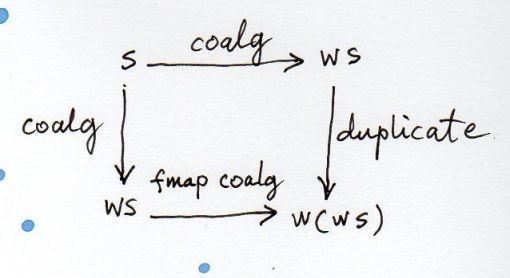 coalg
s
w s
coalg
duplicate
fmap coalg
ws
w(ws)